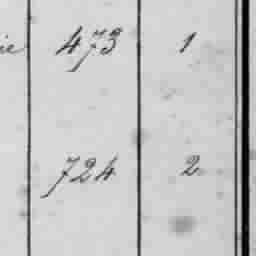 473 1
724 2